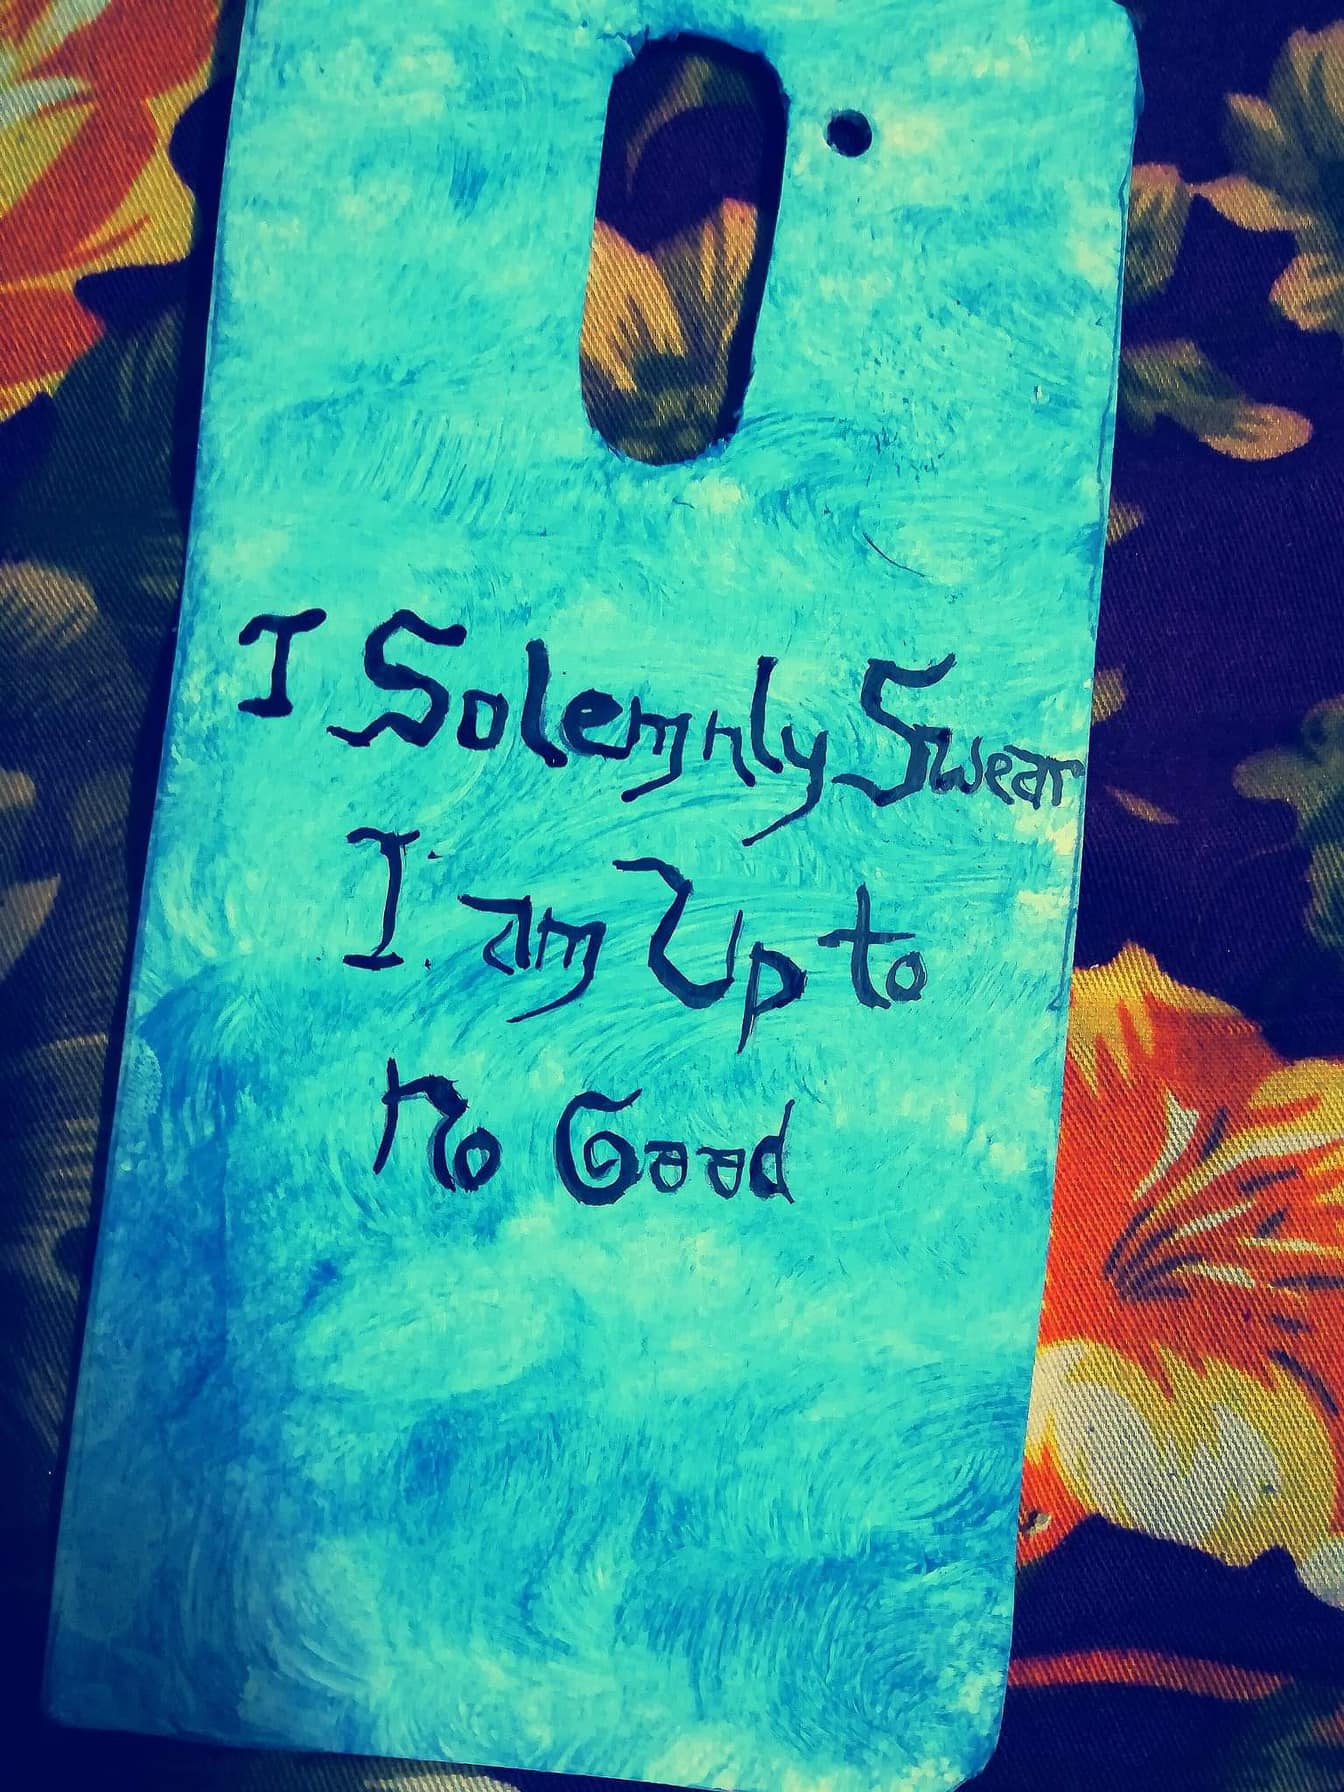 I Solemnly Swear
I am Up to
No Good